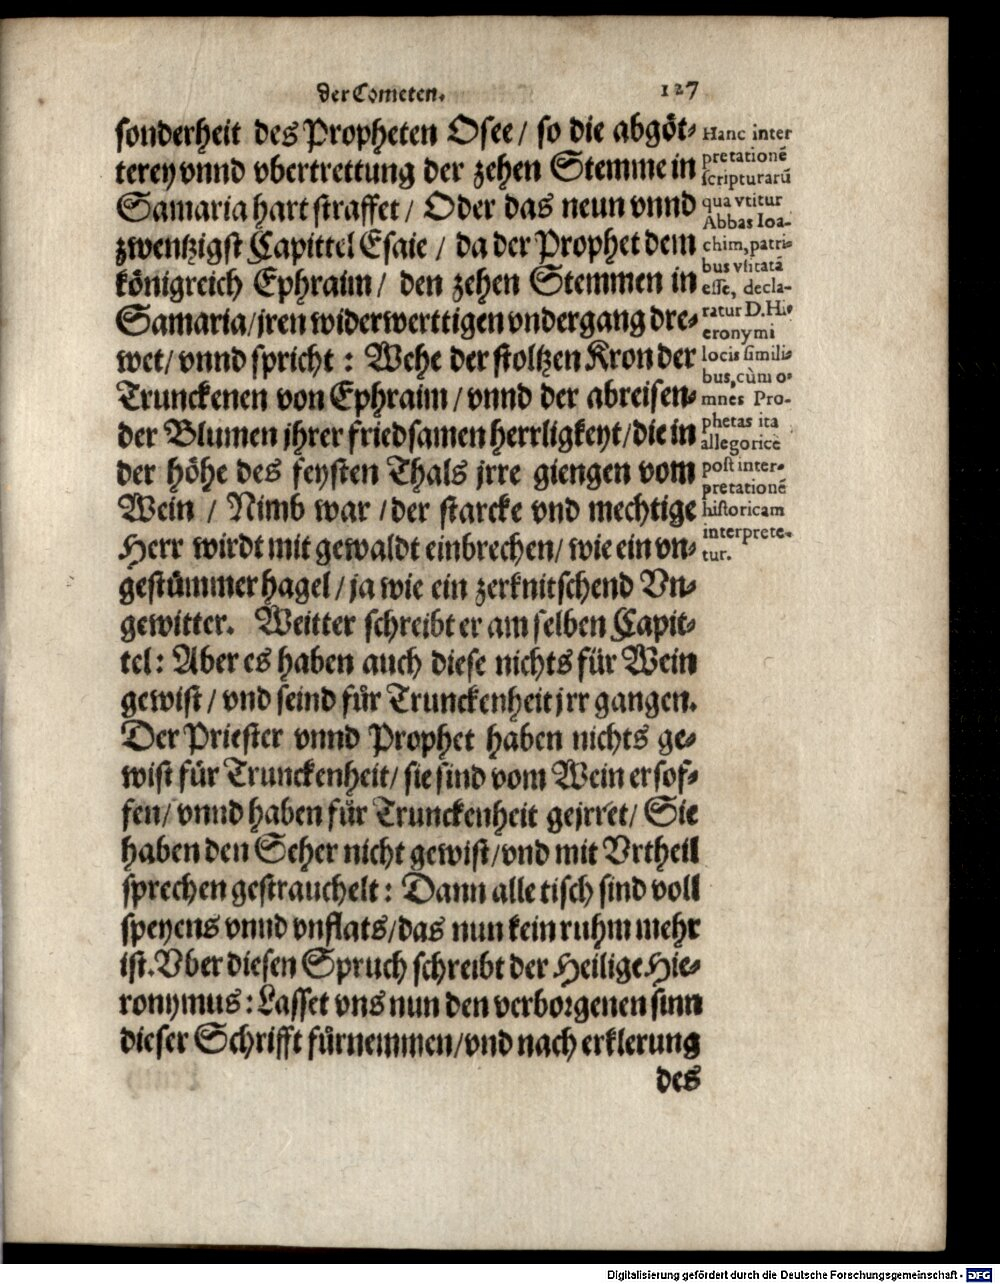 der Cometen. 127
sonderheit des Propheten Osee / so die abgöt-
terey vnnd vbertrettung der zehen Stemme in
Samaria hart straffet / Oder das neun vnnd
zwentzigst Capittel Esaie / da der Prophet dem
königreich Ephraim / den zehen Stemmen in
Samaria / jren widerwerttigen vndergang dre-
wet / vnnd spricht : Wehe der stoltzen Kron der
Trunckenen von Ephraim / vnnd der abreisen-
der Blumen jhrer friedsamen herrligkeyt / die in
der höhe des feysten Thals jrre giengen vom
Wein / Nimb war / der starcke vnd mechtige
Herr wirdt mit gewaldt einbrechen / wie ein vn-
gestümmer hagel / ja wie ein zerknitschend Vn-
gewitter. Weitter schreibt er am selben Capit-
tel : Aber es haben auch diese nichts für Wein
gewist / vnd seind für Trunckenheit jrr gangen.
Der Priester vnnd Prophet haben nichts ge-
wist für Trunckenheit / sie sind vom Wein ersof-
fen / vnnd haben für Trunckenheit gejrret / Sie
haben den Seher nicht gewist / vnd mit Vrtheil
sprechen gestrauchelt : Dann alle tisch sind voll
speyens vnnd vnflats / das nun kein ruhm mehr
ist. Vber diesen Spruch schreibt der Heilige Hie-
ronymus : Lasset vns nun den verborgenen sinn
dieser Schrifft fürnemmen / vnd nach erklerung
des
Hanc inter
pretationē
scripturarū
qua vtitur
Abbas Ioa-
chim, patri-
bus vsitatā
esse, decla-
ratur D. Hi-
eronymi
locis simili-
bus, cùm o-
mnes Pro-
phetas ita
allegoricè
post inter-
pretationē
historicam
interprete-
tur.
Digitalisierung gefördert durch die Deutsche Forschungsgemeinschaft - DFG